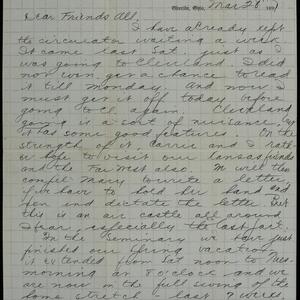 Oberlin, Ohio, Mar 28 1891
Dear Friends All,
I have already kept
the circulator waiting a week.
It came last Sat. just as I
was going to Cleveland. I did
not even get a chance to read
it till Monday. And now I
must get it off today before
going to Cl. again. Cleveland
going is a sort of nuisance, but
it has some good features. On the
strength of it, Carrie and I rather
hope to visit our Kansas friends
and the Far West also. We will then
compel Mary to write a letter
if we have to hold her hand and
pen and dictate the letter. But
this is an air castle all around
I fear, especially the last part.
In the Seminary we have just
finished our Spring vacation
it extended from Sat noon to Mon.
morning at 8 o'clock and we
are now in the full swing of the
home stretch